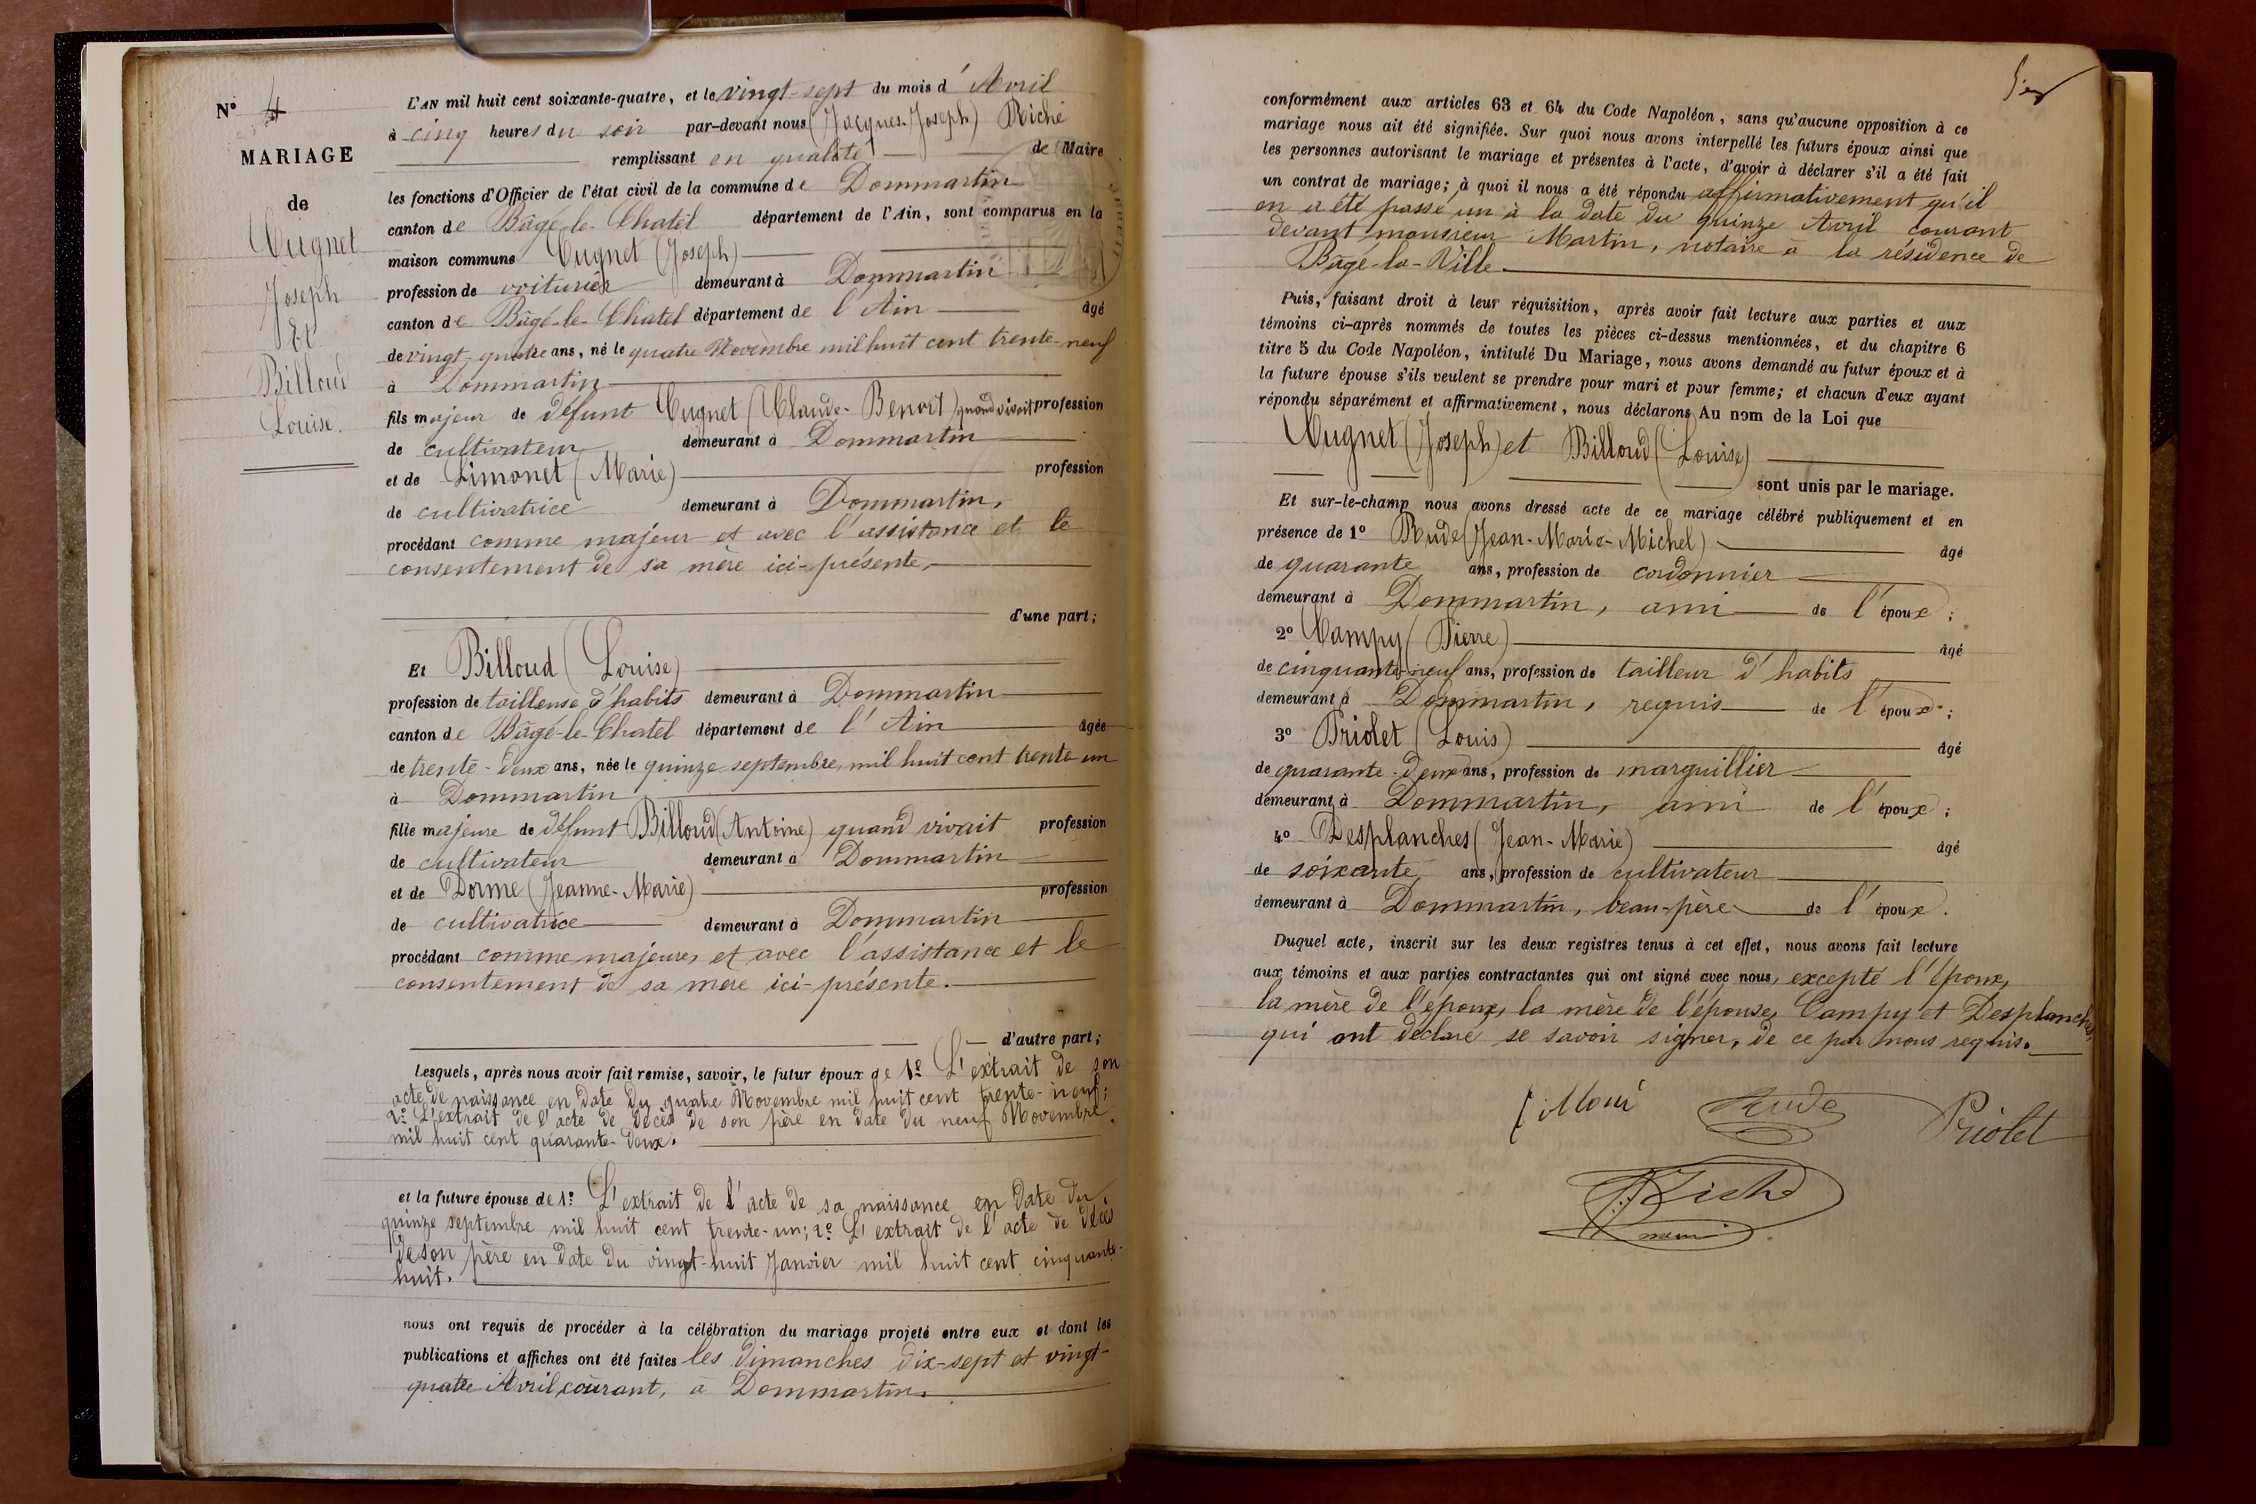 N° 4
MARIAGE
de
Cugnet
Joseph
Et
Billoud
Louise.
L'AN mil huit cent soixante-quatre, et le vingt-sept du mois d'Avril
à cinq heures du soir par-devant nous (Jacques-Joseph) Riche
remplissant en qualité de Maire
les fonctions d'Officier de l'état civil de la commune de Dommartin
canton de Bâgé-le-Chatel département de l'Ain, sont comparus en la
maison commune Cugnet (Joseph)
profession de voiturier demeurant à Dommartin
canton de Bâgé-le-Chatel département de l'Ain âgé
de vingt-quatre ans, né le quatre Novembre mil huit cent trente-neuf
à Dommartin
fils majeur de défunt Cugnet (Claude-Benoit) quand vivait profession
de cultivateur demeurant à Dommartin
et de Limonet (Marie) profession
de cultivatrice demeurant à Dommartin,
procédant comme majeur et avec l'assistance et le
consentement de sa mère ici-présente,
d'une part;
Et Billoud (Louise)
profession de tailleuse d'habits demeurant à Dommartin
canton de Bâgé-le-Chatel département de l'Ain âgée
de trente-deux ans, née le quinze septembre, mil huit cent trente-un
à Dommartin
fille majeure de défunt Billoud (Antoine) quand vivait profession
de cultivateur demeurant à Dommartin
et de Dorme (Jeanne-Marie) profession
de cultivatrice demeurant à Dommartin
procédant comme majeure, et avec l'assistance et le
consentement de sa mère ici-présente.
d'autre part;
Lesquels, après nous avoir fait remise, savoir, le futur époux de 1° L'extrait de son
acte de naissance en date du quatre Novembre mil huit cent trente-neuf;
2° L'extrait de l'acte de décès de son père en date du neuf Novembre
mil huit cent quarante-deux.
et la future épouse de 1° L'extrait de l'acte de sa naissance en date du
quinze septembre mil huit cent trente-un; 2° L'extrait de l'acte de décès
de son père en date du vingt-huit Janvier mil huit cent cinquante-
huit.
nous ont requis de procéder à la célébration du mariage projeté entre eux et dont les
publications et affiches ont été faites les dimanches dix-sept et vingt-
quatre Avril courant, à Dommartin.
conformément aux articles 63 et 64 du Code Napoléon, sans qu'aucune opposition à ce
mariage nous ait été signifiée. Sur quoi nous avons interpellé les futurs époux ainsi que
les personnes autorisant le mariage et présentes à l'acte, d'avoir à déclarer s'il a été fait
un contrat de mariage; à quoi il nous a été répondu affirmativement qu'il
en a été passé un à la date du quinze Avril courant
devant monsieur Martin, notaire à la résidence de
Bâgé-la-Ville.
Puis, faisant droit à leur réquisition, après avoir fait lecture aux parties et aux
témoins ci-après nommés de toutes les pièces ci-dessus mentionnées, et du chapitre 6
titre 5 du Code Napoléon, intitulé Du Mariage, nous avons demandé au futur époux et à
la future épouse s'ils veulent se prendre pour mari et pour femme; et chacun d'eux ayant
répondu séparément et affirmativement, nous déclarons Au nom de la Loi que
Cugnet (Joseph) et Billoud (Louise)
sont unis par le mariage.
Et sur-le-champ nous avons dressé acte de ce mariage célébré publiquement et en
présence de 1° Rude (Jean-Marie-Michel) âgé
de quarante ans, profession de cordonnier
demeurant à Dommartin, ami de l'époux;
2° Campy (Pierre) âgé
de cinquante-neuf ans, profession de tailleur d'habits
demeurant à Dommartin, requis de l'époux;
3° Priolet (Louis) âgé
de quarante-deux ans, profession de marguillier
demeurant à Dommartin, ami de l'époux;
4° Desplanches (Jean-Marie) âgé
de soixante ans, profession de cultivateur
demeurant à Dommartin, beau-père de l'époux.
Duquel acte, inscrit sur les deux registres tenus à cet effet, nous avons fait lecture
aux témoins et aux parties contractantes qui ont signé avec nous, excepté l'époux,
la mère de l'époux, la mère de l'épouse, Campy et Desplanches,
qui ont déclaré se savoir signer, de ce par nous requis.
Rude
Priolet
JJ Riche